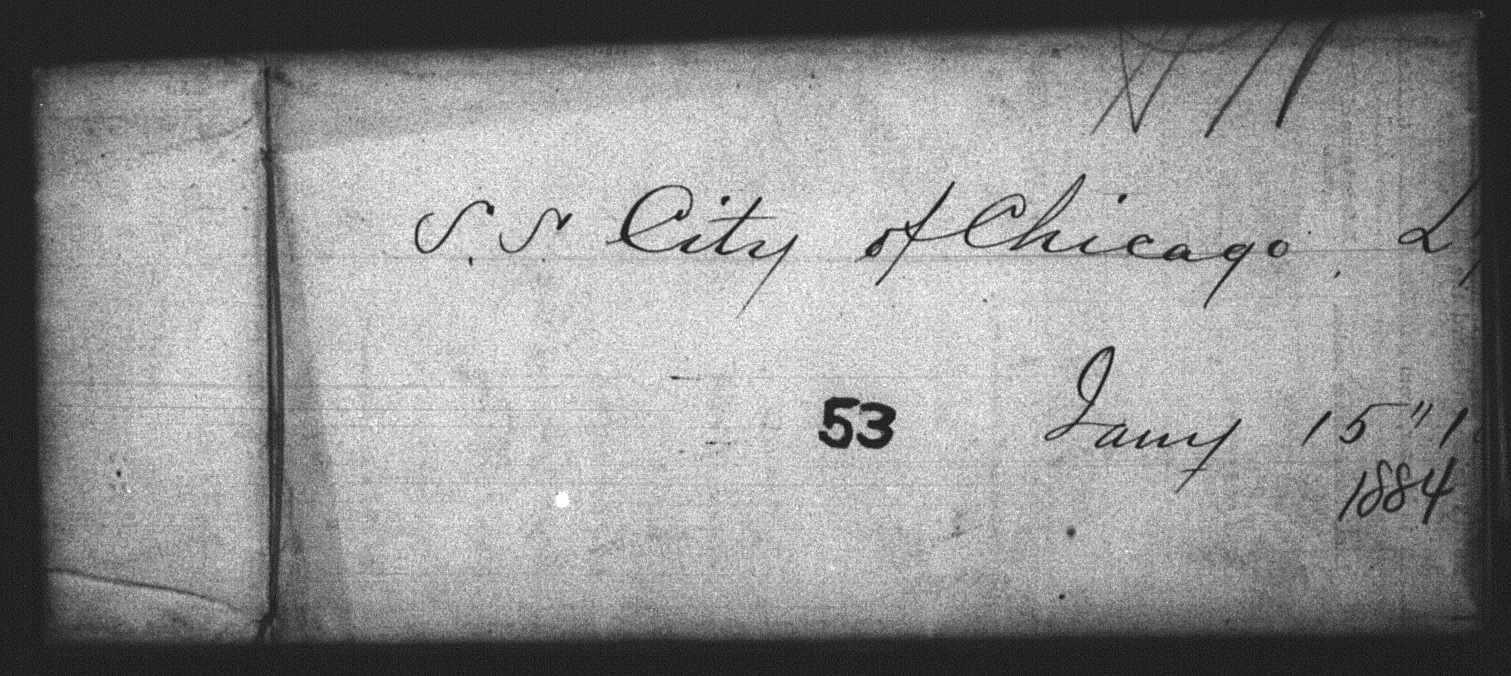 S. S. City of Chicago.
53 Jany 15"
1884